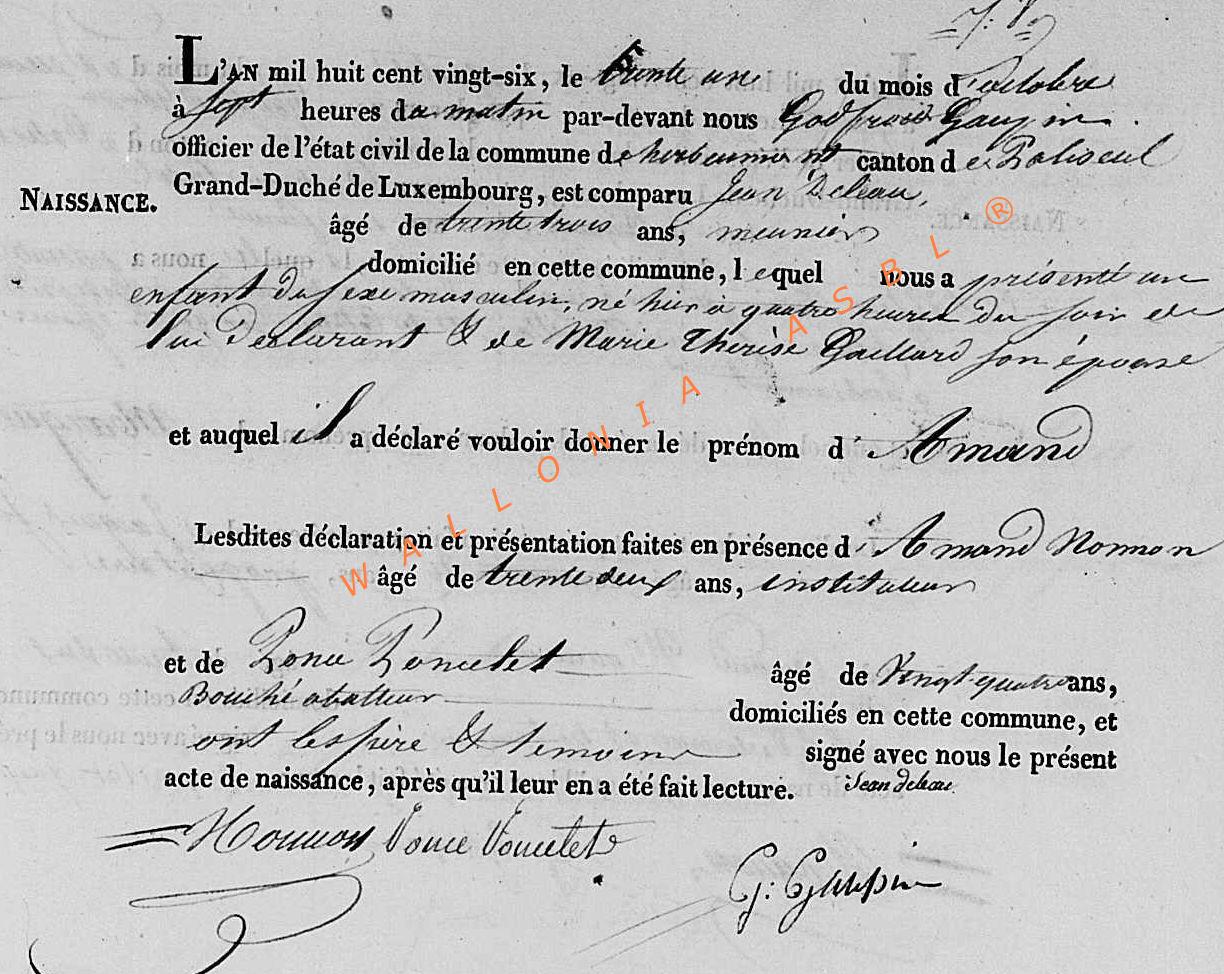 L'AN mil huit cent vingt-six, le trente un du mois d'octobre
à sept heures du matin par-devant nous Godfroid Gaupin
officier de l'état civil de la commune de herbeumont canton de Paliseul
NAISSANCE. Grand-Duché de Luxembourg, est comparu Jean Deleau,
âgé de trente trois ans, meunier
domicilié en cette commune, lequel nous a présenté un
enfant du sexe masculin, né hier à quatre heures du soir de
lui declarant & de Marie Therèse Gaillard son épouse
et auquel il a déclaré vouloir donner le prénom d'Amand
Lesdites déclaration et présentation faites en présence d'Amand
âgé de trente deux ans, instituteur
et de Ponce Poncelet âgé de Vingt quatre ans,
domiciliés en cette commune, et
ont les père & temoins signé avec nous le présent
acte de naissance, après qu'il leur en a été fait lecture. Jean deleau.
Ponce Poncelet
G: Gaupin
WALLONIA ASBL ®